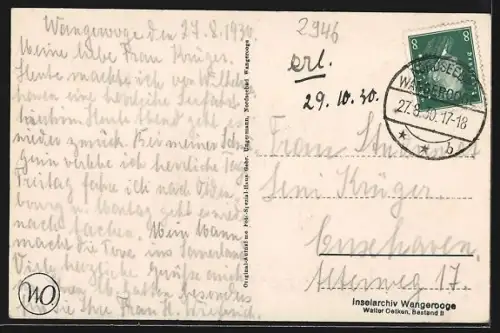 Wangerooge den 27.8.1930.
Meine liebe Frau Krüger.
Heute machte ich von Wilhelms-
haven eine herrliche Seefahrt
Heute Abend geht es
wieder zurück. Bei meiner
ich herrliche
Freitag fahre ich nach Olden-
burg u. Montag geht es
nach Aachen. Mein Mann
macht die Tour ins Sauerland.
Viele herzliche Grüße auch
besonders
Ihre Frau H.
WO
Original-Aufnahme Foto-Spezial-Haus Gebr. Nordseebad Wangerooge
2946
erl.
29.10.30.
8 8
NORDSEEBAD
WANGEROOGE
27.8.30.17-18
* * b
Frau
Leni Krüger
Cuxhaven.
Alterweg 17.
Inselarchiv Wangerooge
Walter Oetken, Bestand B